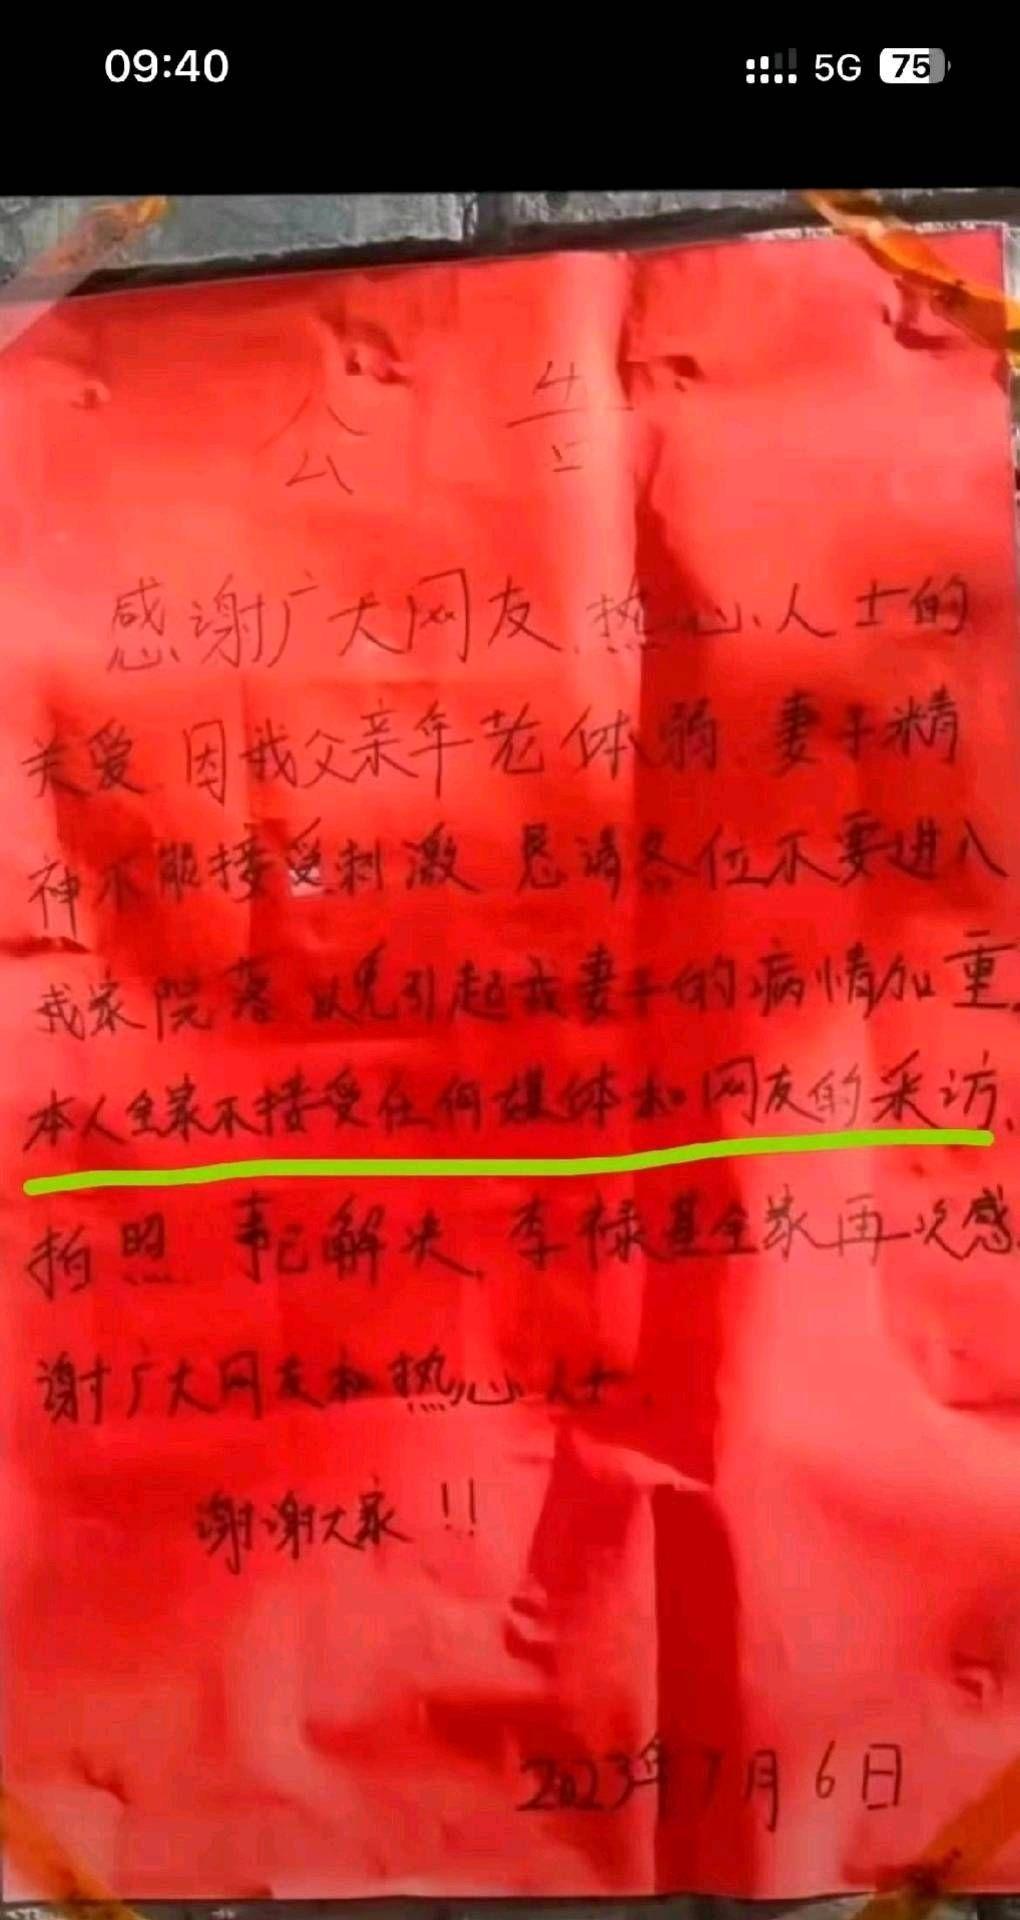 09:40 5G 75
公告
感谢广大网友、热心人士的
关爱 因我父亲年老体弱、妻子精
神不能接受刺激 恳请各位不要进入
我家院落 以免引起我妻子的病情加重、
本人全家不接受任何媒体和网友的采访、
拍照 事已解决、李禄基全家再次感
谢广大网友和热心人士、
谢谢大家!!
2023年7月6日